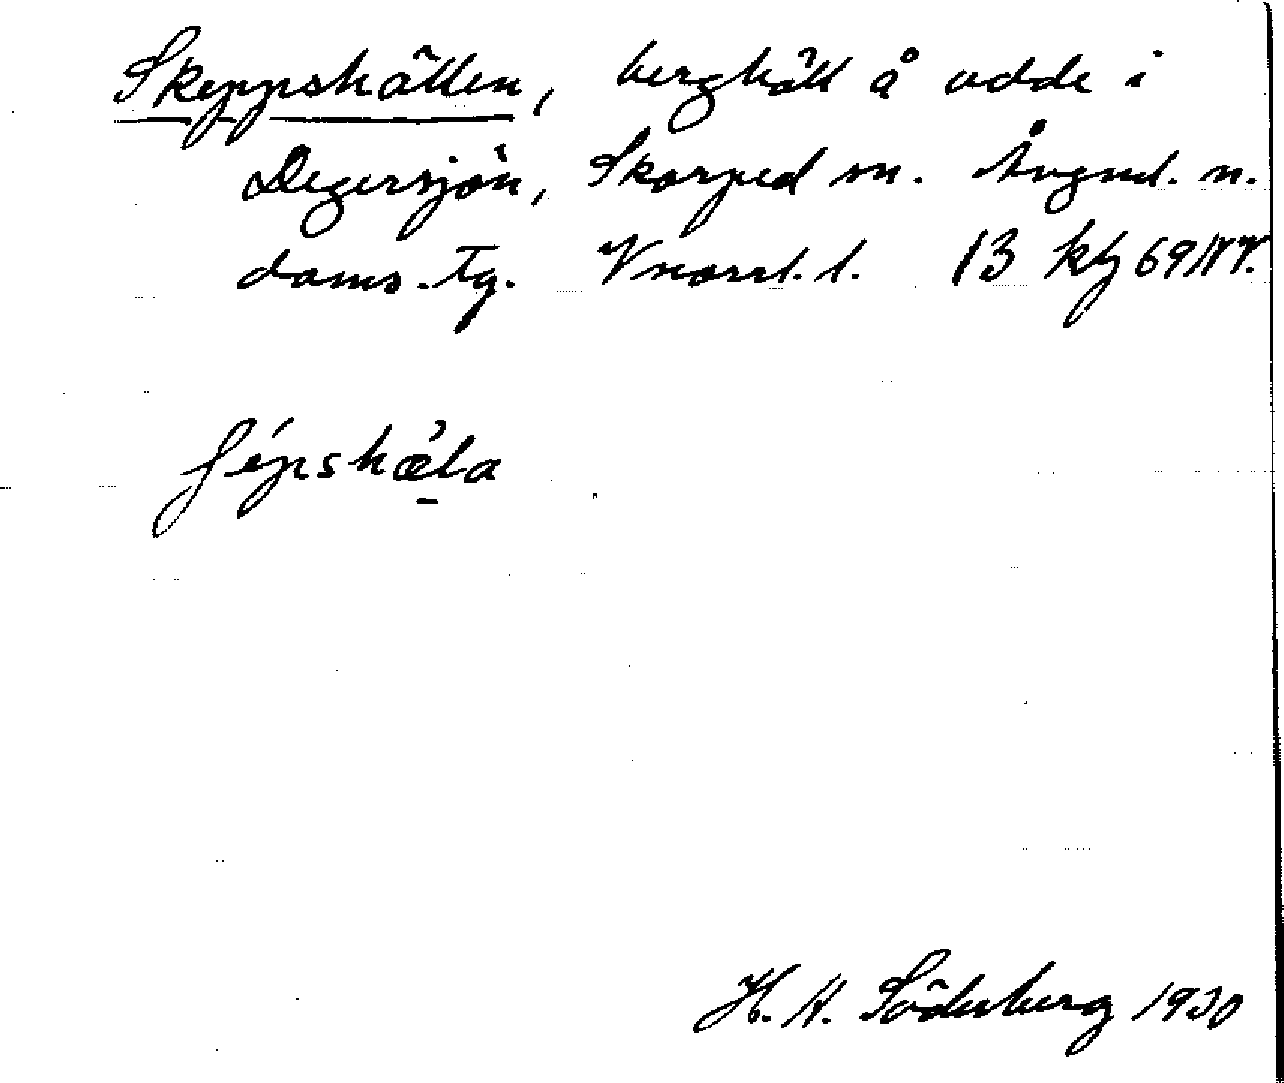 Skeppshällen, berghäll å udde i
Degersjön, Skorped sn. Ångml. n.
doms. tg. Vnorrl. l. 13 kbl 69 NV.
ʃépshæ̀la
H. A. Söderberg 1930